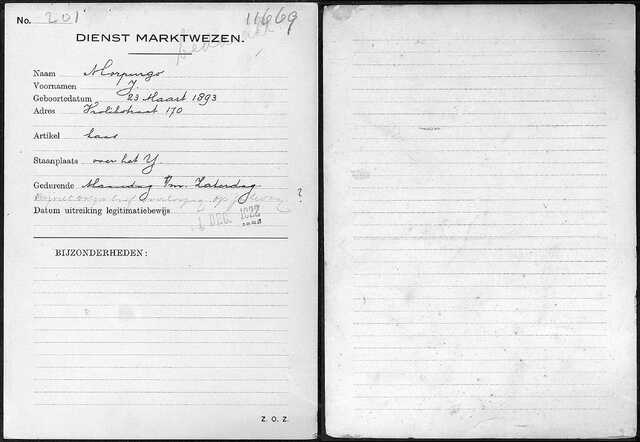 No. 201
11669
DIENST MARKTWEZEN.
Naam Morpurgo
Voornamen J.
Geboortedatum 23 Maart 1893
Adres Krolikstraat 170
Artikel kaas
Staanplaats over het Y.
Gedurende Maandag t/m Zaterdag
?
Datum uitreiking legitimatiebewijs 1 DEC. 1922
BIJZONDERHEDEN:
Z. O. Z.